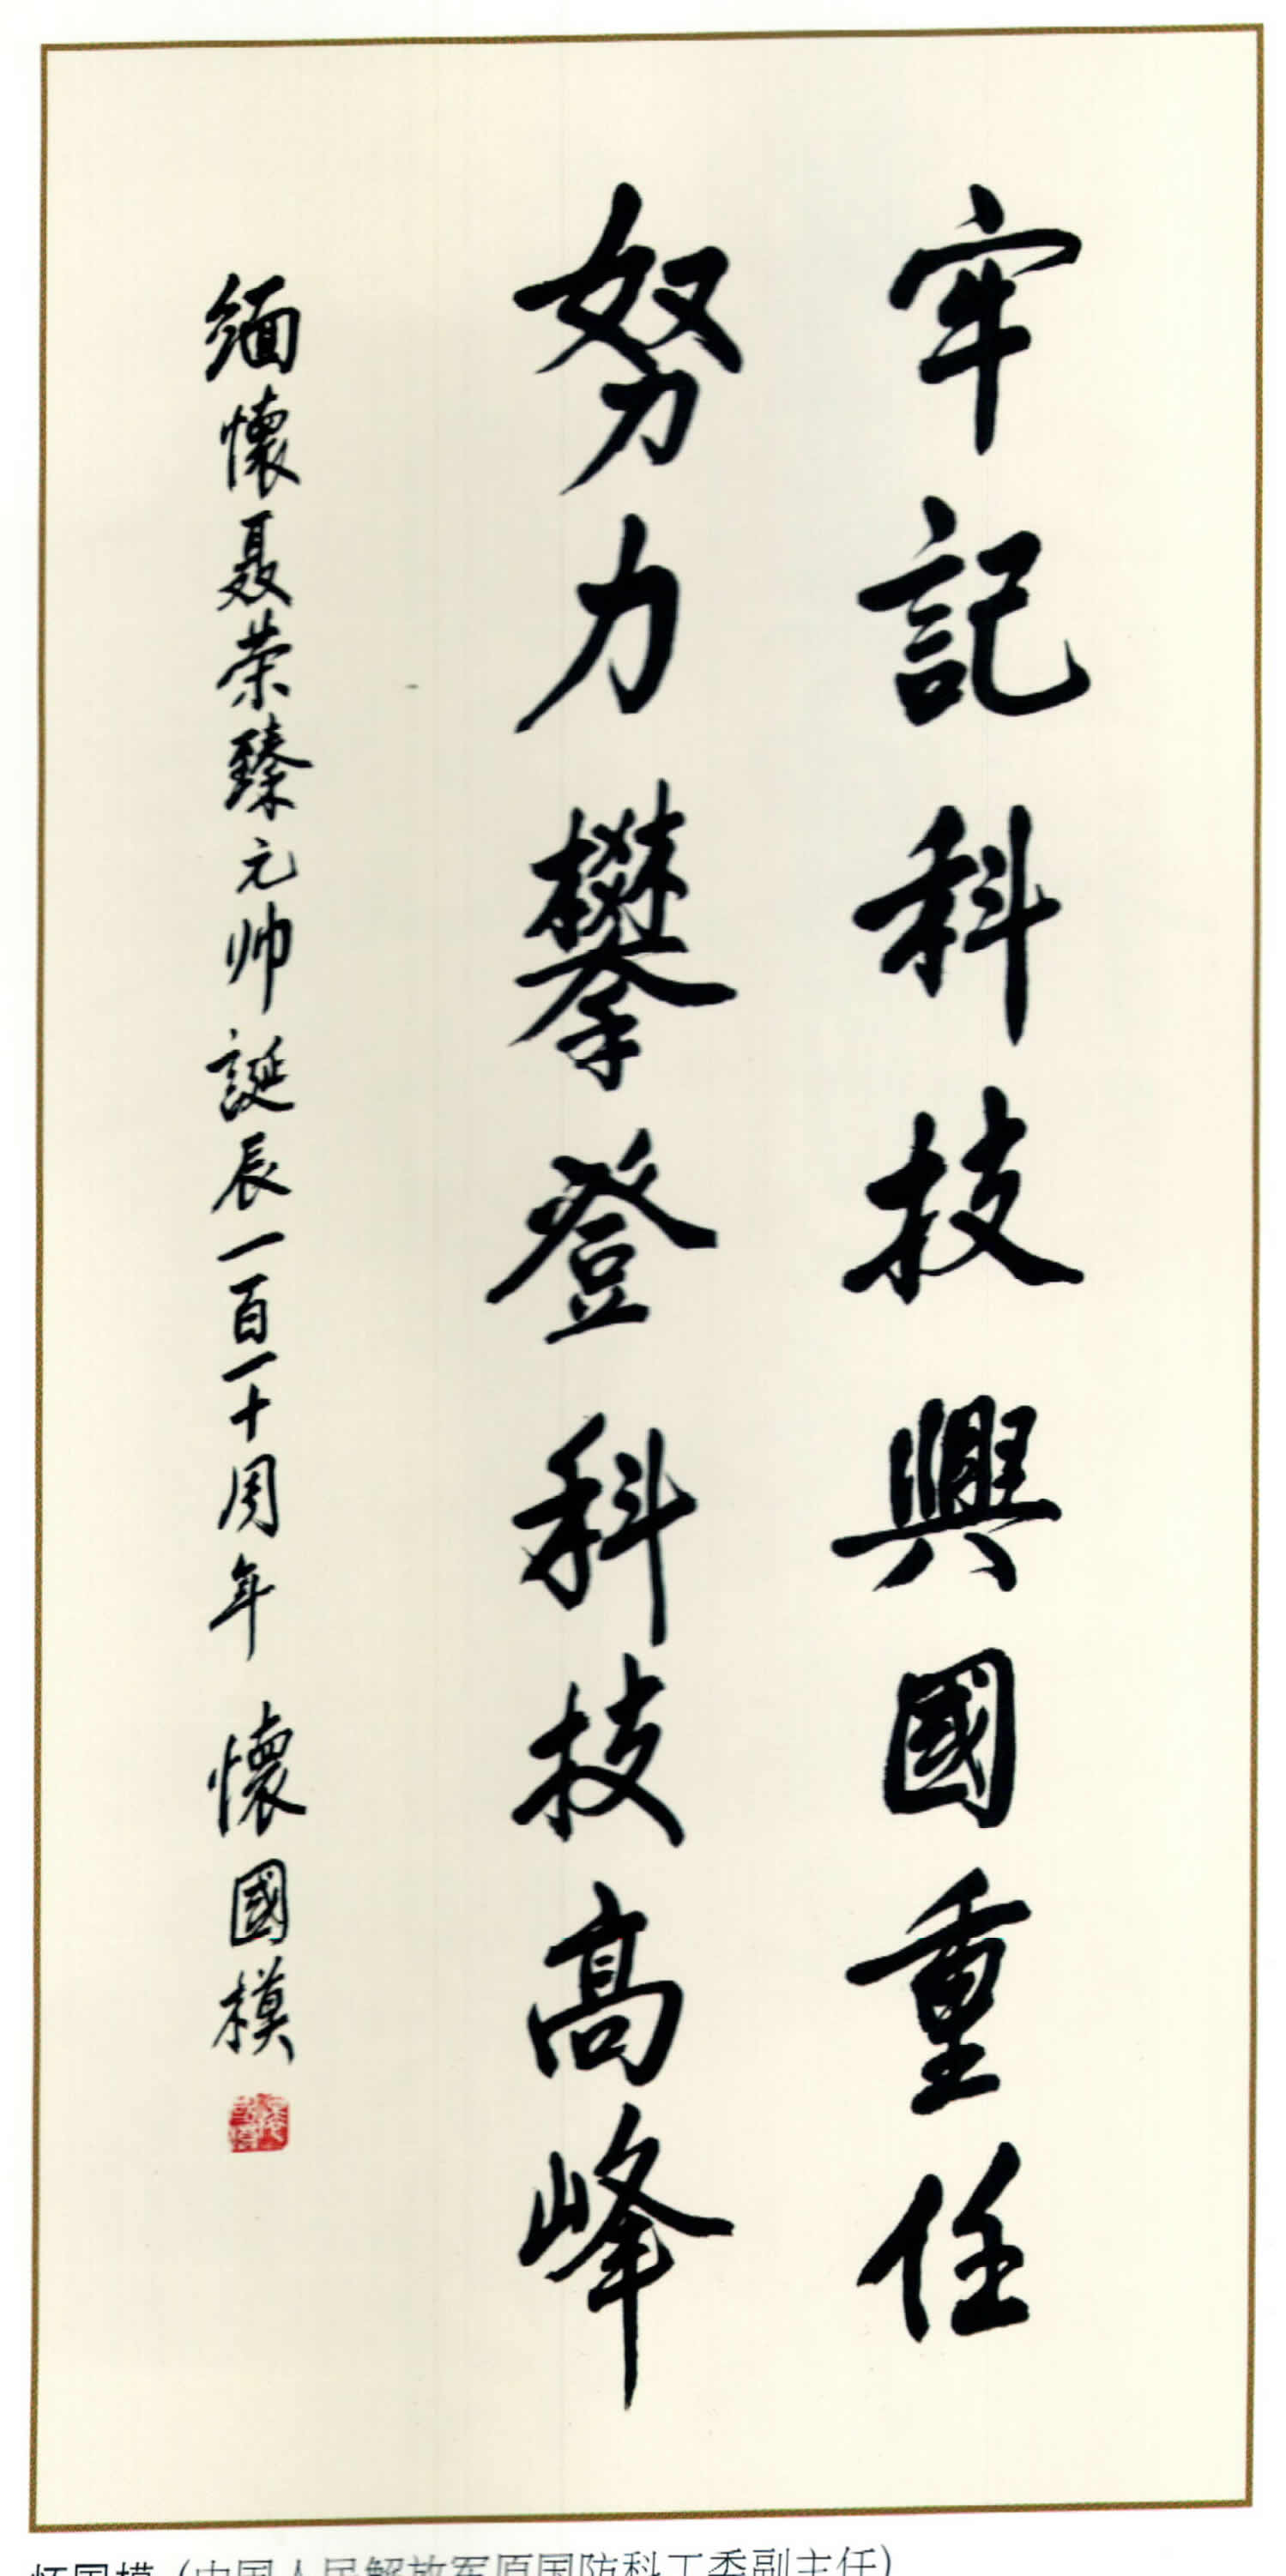 牢記科技興國重任
努力攀登科技高峰
緬懷聂荣臻元帅誕辰一百一十周年 懷國模
怀国模（中国人民解放军原国防科工委副主任）